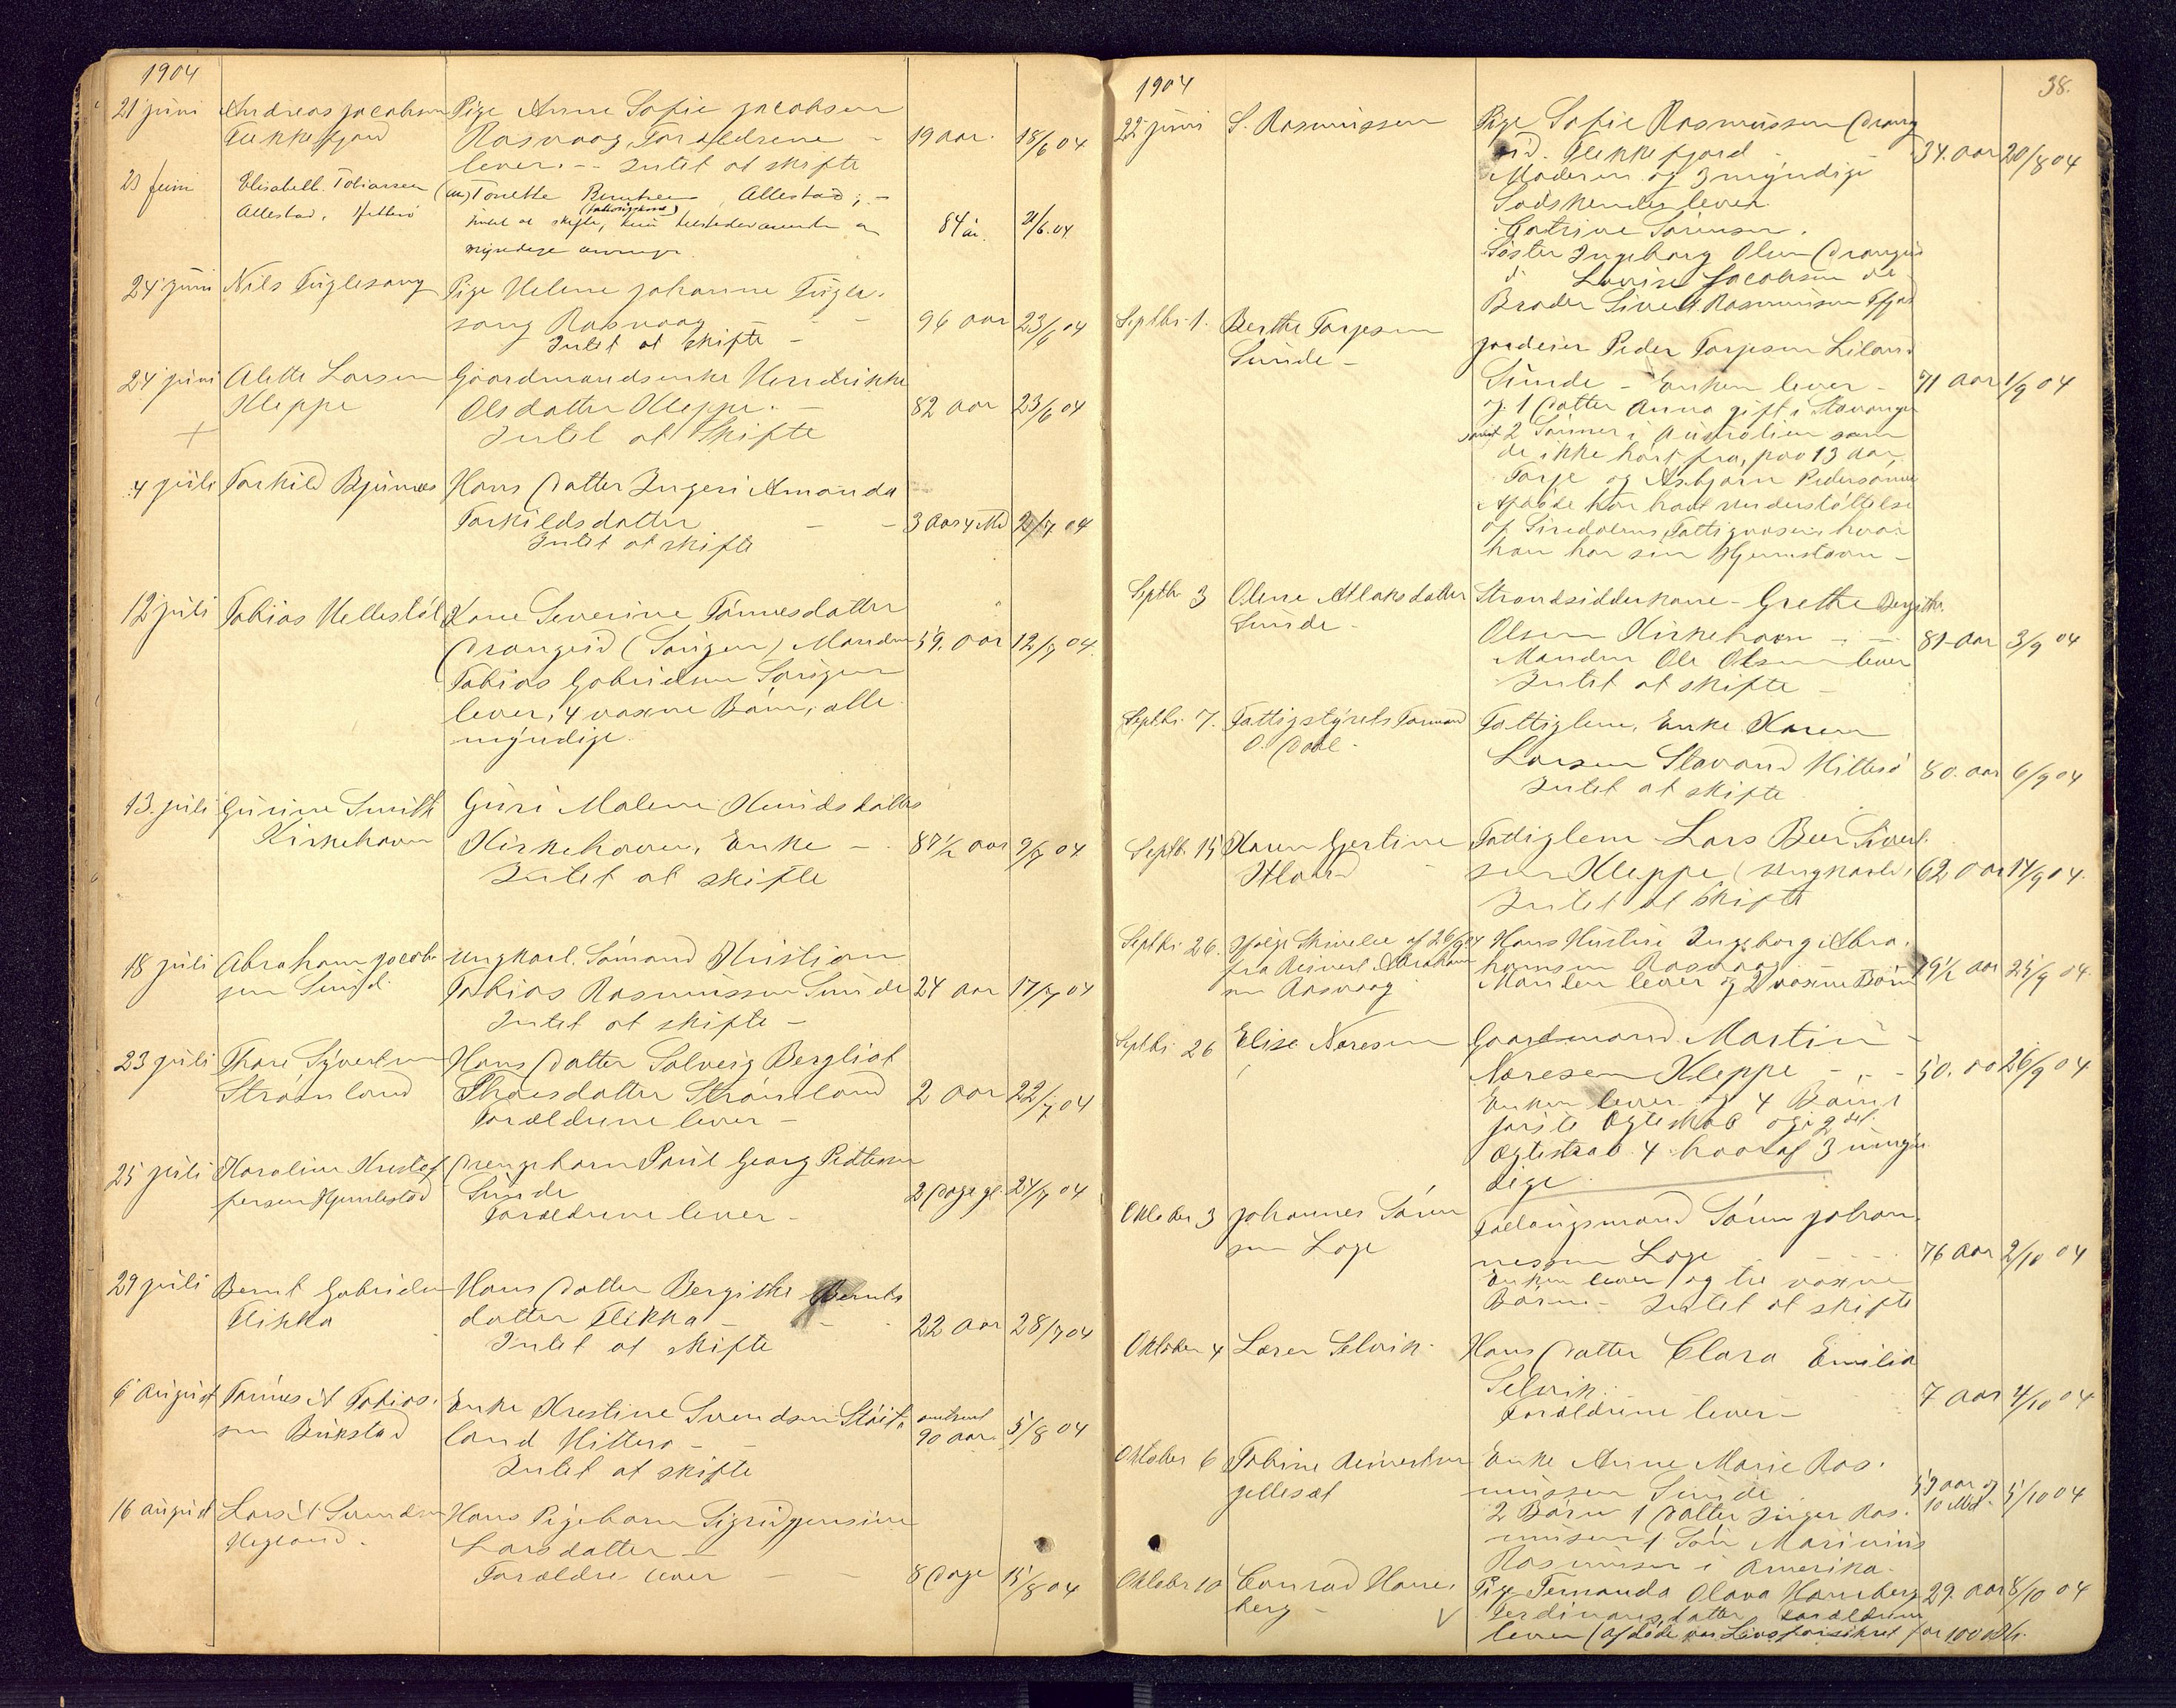 1904
21 juni Andreas Jacobsen Pige Anne Sofie Jacobsen
Flekkefjord Rasvaag, Forældrene - 19 aar. 18/6 04
lever. - - Intet at skifte
23 juni Elisabeth Tobiassen Tonette Allestad; -
Allestad, Hitterø Intet at skifte, 84 år. 21/6.04
myndige arvinger
24 juni Nils Fuglesang Pige Helene Johanne Fugle-
sang Rasvaag - - - 96 aar 23/6 04
Intet at skifte -
24 juni Alette Larsen Gaardmandsenke Hendrikke
Kleppe Olsdatter Kleppe. - 82 aar 23/6 04
+ Intet at skifte
4 juli Torkild Bjunæs Hans Datter Ingeri Amanda
Torkildsdatter - - 3 aar 4 Md 2/7 04
Intet at skifte
12 juli Tobias Hellestøl Kone Severine Tønnesdatter
Drangeid (Saugen) Manden 59. aar 12/7 04.
Tobias Gabrielsen Saugen
lever, 4 voxne Børn, alle
myndige.
13. juli Gurine Smith Guri Malene Knudsdatter
Kirkehavn Kirkehavn, Enke - 87½ aar 9/7 04
Intet at skifte
18 juli Abraham Jacob- Ungkarl. Sømand Kristian
sen Sund. Tobias Rasmussen Sunde 24 aar 17/7 04
Intet at skifte -
23 juli Thore Syvertsen Hans Datter Solveig Bergliot
Strømland Thoresdatter Strømland 2 aar 22/7 04
Forældrene lever -
25 juli Karoline Kristof- Drengebarn Paul Georg Pedersen
fersen Sunde 2 Dage gl. 24/7 04
Forældrene lever -
29 juli Bernt Gabrielsen Hans Datter Bergithe Bernts
Flikka datter Flikka - - 22 aar 28/7 04
Intet at skifte
6 august Tønnes A Tobias- Enke Krestine Svendsen Støit- omtrent
sen Bukstad land Hitterø - - 90 aar. 5/8 04
Intet at skifte
16 august Lars Svendsen Hans Pigebarn Sigrid Jensine
Hegland. Larsdatter -
Forældre lever - - 8 Dage 15/8 04
1904 38.
22 juni S. Rasmussen Pige Sofie Rasmussen Drang
eid. Flekkefjord - 34. aar 20/8 04
Moderen og 3 myndige
Sødskende lever.
Catrine Sørensen.
Søster Ingeborg Olsen Drangeid
d. Lovise Jacobsen do
Broder Sivert Rasmussen Ffjord
Septbr. 1. Berthe Torjesen
Sunde - Jordeier Peder Torjesen Liland
Sunde - Enken lever - 71 aar 1/9 04
og 1 Datter Anna gift i Stavanger
samt 2 Sønner i Australien som
de ikke hørt fra, paa 13 aar,
Torje og Asbjørn Pedersønner
Afdøde har havt understøttelse
af Siredalens Fattigvæsen hvor
han har sin Hjemstavn -
Septbr 3 Olene Atlaksdatter Strandsidderkone - Grethe Bergithe
Sunde - Olsen Kirkehavn - - 81 aar 3/9 04
Manden Ole Olsen lever
Intet at skifte -
Septbr. 7. Fattigstyrets Formand Fattiglem, Enke Karen
O. Dahl - Larsen Stavand Hitterø 80. aar 6/9 04
Intet at skifte
Septbr 15 Karen Gjertine Fattiglem - Lars Beer Sivert-
Sten Kleppe (Ungkarl) 62 aar 14/9 04.
Intet at skifte
Septbr. 26. Ifølge Skrivelse af 26/9 04 Hans Hustru Ingeborg Abra-
fra Reinert Abraham- hamsen Rasvaag - 25/9 04.
sen Rasvaag Manden lever og 2 voxne Børn
Septbr. 26 Elise Naresen Gaardmand Martin -
Naresen Kleppe - - - 50. aar 26/9 04
Enken lever og 4 Børn i
første Ægteskab og i 2det
Ægteskab 4. hvoraf 3 umyn-
dige.
Oktober 3 Johannes Søren- Føderaadsmand Søren Johan-
sen Loge nessen Loge - - - 76 aar 2/10 04
Enken lever, og tre voxne
Børn - Intet at skifte
Oktober 4 Lærer Selvik. Hans Datter Clara Emilia
Selvik. 7 aar 4/10 04
Forældrene lever -
Oktober 6 Tobine Reinertsen Enke Anne Marie Ras-
Jellesæt mussen Sunde 53 aar og 10 Md. 5/10 04
2 Børn 1 Datter Inger Ras-
mussen 1 Søn Marinius
Rasmussen i Amerika.
Oktobr 10 Conrad Hanne- Pige Fernanda Olava Hanneberg 29. aar 8/10 04
berg - V Ferdinandsdatter Forældrene
lever (afdøde var Livsforsikret for 1000 Kr.